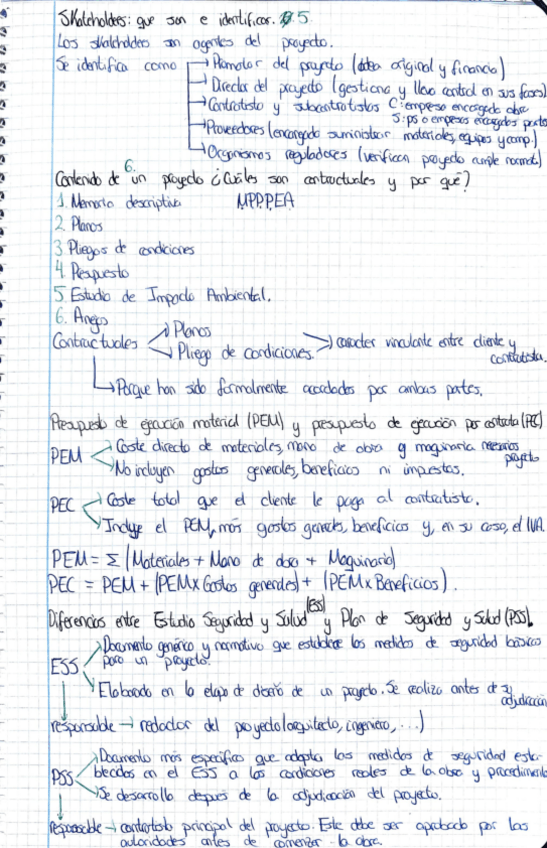 Stakeholders: que son e identificar. 5
Los stakeholders son agentes del proyecto.
Se identifica como → Promotor del proyecto (idea original y financia)
→ Director del proyecto (gestiona y lleva control en sus fases)
→ Contratista y subcontratistas C: empresa encargada obra
S: ps o empresas encargadas parte
→ Proveedores (encargado suministrar materiales, equipos y comp.)
→ Organismos reguladores (verifican proyecto cumple normat.)
6.
Contenido de un proyecto ¿Cuáles son contractuales y por qué?
1. Memoria descriptiva MPPPEA
2. Planos
3 Pliegos de condiciones
4. Presupuesto
5 Estudio de Impacto Ambiental.
6. Anejo
Contractuales → Planos
→ Pliego de condiciones. → carácter vinculante entre cliente y contratista.
→ Porque han sido formalmente acordados por ambas partes.
Presupuesto de ejecución material (PEM) y presupuesto de ejecución por contrata (PEC)
PEM → Coste directo de materiales, mano de obra y maquinaria necesarios proyecto
→ No incluyen gastos generales, beneficios ni impuestos.
PEC → Coste total que el cliente le paga al contratista.
→ Incluye el PEM, más gastos generales, beneficios y, en su caso, el IVA
PEM = Σ (Materiales + Mano de obra + Maquinaria)
PEC = PEM + (PEM x Gastos generales) + (PEM x Beneficios).
Diferencias entre Estudio Seguridad y Salud (ESS) y Plan de Seguridad y Salud (PSS).
ESS → Documento genérico y normativo que establece las medidas de seguridad básicas
para un proyecto.
→ Elaborado en la etapa de diseño de un proyecto. Se realiza antes de su adjudicación
responsable → redactor del proyecto (arquitecto, ingeniero, ...)
PSS → Documento más específico que adapta las medidas de seguridad esta-
blecidas en el ESS a las condiciones reales de la obra y procedimiento
→ Se desarrolla después de la adjudicación del proyecto.
responsable → contratista principal del proyecto. Este debe ser aprobado por las
autoridades antes de comenzar la obra.